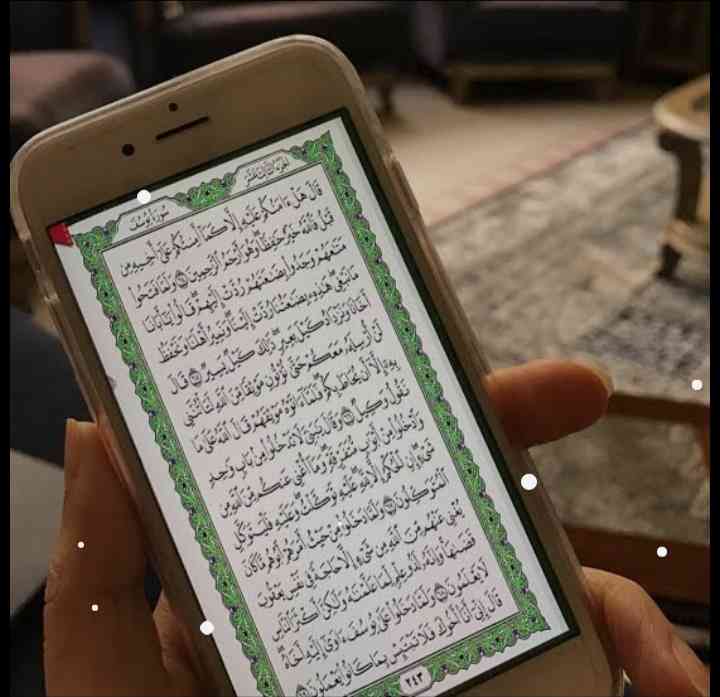 الجزء الثالث عشر
سورة يوسف
قَالَ هَلْ ءَامَنُكُمْ عَلَيْهِ إِلَّا كَمَآ أَمِنتُكُمْ عَلَىٰٓ أَخِيهِ مِن
قَبْلُ فَٱللَّهُ خَيْرٌ حَـٰفِظًا وَهُوَ أَرْحَمُ ٱلرَّٰحِمِينَ ٦٤ وَلَمَّا فَتَحُوا۟
مَتَـٰعَهُمْ وَجَدُوا۟ بِضَـٰعَتَهُمْ رُدَّتْ إِلَيْهِمْ قَالُوا۟ يَـٰٓأَبَانَا
مَا نَبْغِى هَـٰذِهِۦ بِضَـٰعَتُنَا رُدَّتْ إِلَيْنَا وَنَمِيرُ أَهْلَنَا وَنَحْفَظُ
أَخَانَا وَنَزْدَادُ كَيْلَ بَعِيرٍ ذَٰلِكَ كَيْلٌ يَسِيرٌ ٦٥ قَالَ
لَنْ أُرْسِلَهُۥ مَعَكُمْ حَتَّىٰ تُؤْتُونِ مَوْثِقًا مِّنَ ٱللَّهِ لَتَأْتُنَّنِى
بِهِۦٓ إِلَّآ أَن يُحَاطَ بِكُمْ فَلَمَّآ ءَاتَوْهُ مَوْثِقَهُمْ قَالَ ٱللَّهُ عَلَىٰ مَا
نَقُولُ وَكِيلٌ ٦٦ وَقَالَ يَـٰبَنِىَّ لَا تَدْخُلُوا۟ مِنۢ بَابٍ وَٰحِدٍ
وَٱدْخُلُوا۟ مِنْ أَبْوَٰبٍ مُّتَفَرِّقَةٍ وَمَآ أُغْنِى عَنكُم مِّنَ ٱللَّهِ مِن
شَىْءٍ إِنِ ٱلْحُكْمُ إِلَّا لِلَّهِ عَلَيْهِ تَوَكَّلْتُ وَعَلَيْهِ فَلْيَتَوَكَّلِ
ٱلْمُتَوَكِّلُونَ ٦٧ وَلَمَّا دَخَلُوا۟ مِنْ حَيْثُ أَمَرَهُمْ أَبُوهُم مَّا كَانَ
يُغْنِى عَنْهُم مِّنَ ٱللَّهِ مِن شَىْءٍ إِلَّا حَاجَةً فِى نَفْسِ يَعْقُوبَ
قَضَىٰهَا وَإِنَّهُۥ لَذُو عِلْمٍ لِّمَا عَلَّمْنَـٰهُ وَلَـٰكِنَّ أَكْثَرَ ٱلنَّاسِ
لَا يَعْلَمُونَ ٦٨ وَلَمَّا دَخَلُوا۟ عَلَىٰ يُوسُفَ ءَاوَىٰٓ إِلَيْهِ أَخَاهُ
قَالَ إِنِّىٓ أَنَا۠ أَخُوكَ فَلَا تَبْتَئِسْ بِمَا كَانُوا۟ يَعْمَلُونَ ٦٩
٢٤٣